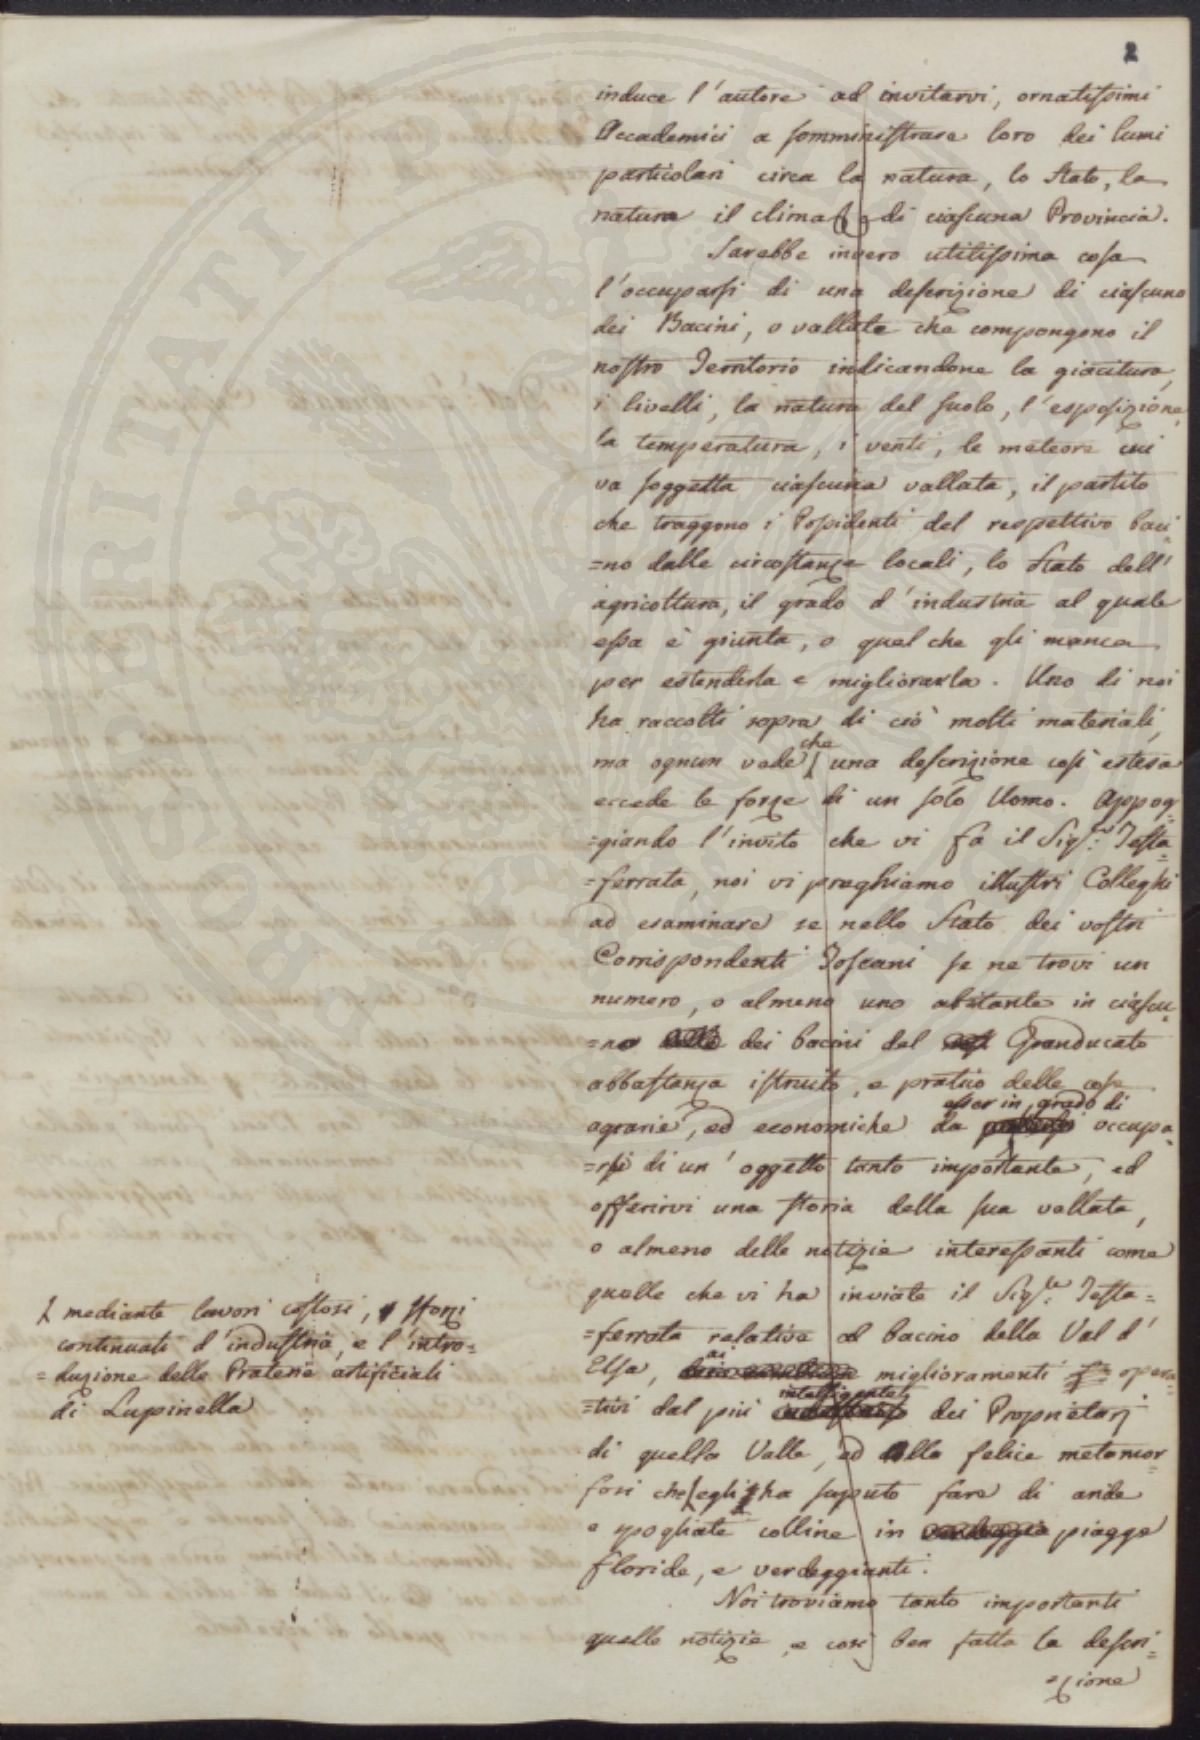 2
induce l'autore ad invitarvi, ornatissimi
Accademici a somministrare loro dei lumi
particolari circa la natura, lo Stato, la
natura il clima di ciascuna Provincia.
Sarebbe invero utilissima cosa
l'occuparsi di una descrizione di ciascuno
dei Bacini, o vallate che compongono il
nostro Territorio indicandone la giacitura,
i livelli, la natura del suolo, l'esposizione,
la temperatura, i venti, le meteore cui
va soggetta ciascuna vallata, il partito
che traggono i Possidenti del respettivo baci
=no dalle circostanze locali, lo Stato dell'
agricoltura, il grado d'industria al quale
essa è giunta, o quel che gli manca
per estenderla e migliorarla. Uno di noi
ha raccolti sopra di ciò molti materiali,
ma ognun vede che una descrizione così estesa
eccede le forze di un solo Uomo. Appog=
=giando l'invito che vi fa il Sig.r Testa=
=ferrata, noi vi preghiamo illustri Colleghi
ad esaminare se nello Stato dei vostri
Corrispondenti Toscani se ne trovi un
numero, o almeno uno abitante in ciascu=
=no dei bacini del Granducato
abbastanza istruito, e pratico delle cose
agrarie, ed economiche da esser in grado di occupa=
=rsi di un'oggetto tanto importante, ed
offerirvi una storia della sua vallata,
o almeno delle notizie interessanti come
quelle che vi ha inviate il Sig.re Testa=
=ferrata relative al bacino della Val d'
Elsa, ai miglioramenti opera=
=tivi dal più intelligente dei Proprietarj
di quella Valle, ed alla felice metamor=
fosi che egli ha saputo fare di aride
e spogliate colline in piagge
floride, e verdeggianti.
Noi troviamo tanto importanti
quelle notizie, e così ben fatta la descri=
=zione
mediante lavori costosi, sforzi
continuati d'industria, e l'intro=
=duzione delle Praterie artificiali
di Lupinella